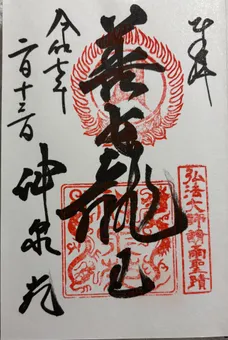 奉拝
弘法大師請雨聖蹟
善女龍王
令和六年
二月十三日
神泉苑